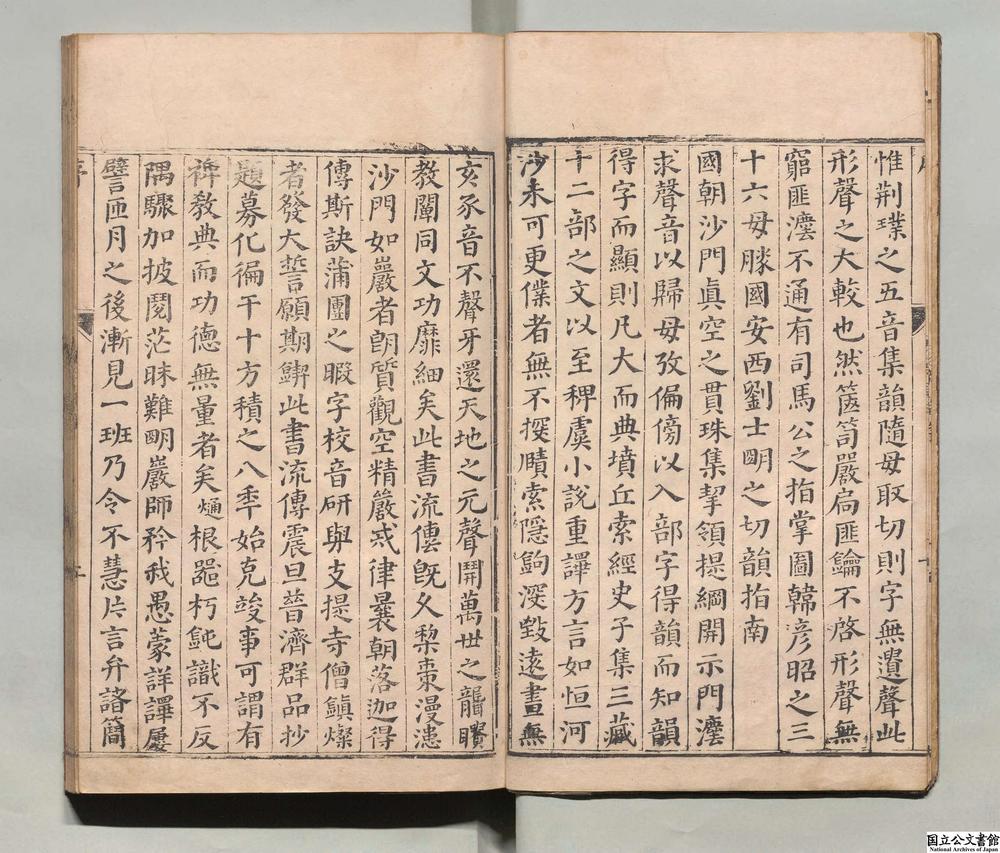 惟荆璞之五音集韻隨母取切則字無遺聲此
形聲之大較也然篋笥嚴扃匪鑰不啓形聲無
窮匪灋不通有司馬公之指掌圖韓彦昭之三
十六母勝國安西劉士明之切韻指南
國朝沙門眞空之貫珠集挈領提綱開示門灋
求聲音以歸母攷偏傍以入部字得韻而知韻
得字而顯則凡大而典墳丘索經史子集三藏
十二部之文以至稗虞小說重譯方言如恒河
沙未可更僕者無不探賾索隠鉤深致遠畫無
亥豕音不聲牙還天地之元聲開萬世之聾瞶
教闡同文功靡細矣此書流傳旣久梨棗漫漶
沙門如巖者朗質觀空精嚴戒律曩朝落迦得
傳斯訣蒲團之暇字校音研與支提寺僧鎮燦
者發大誓願期鍥此書流傳震旦普濟群品抄
題募化徧干十方積之八秊始克竣事可謂有
裨敎典而功德無量者矣㷀根噐朽鈍識不反
隅驟加披閱茫昧難明巖師矜我愚蒙詳譯屢
譬匝月之後漸見一班乃令不慧片言弁諸簡
序
國立公文書館
National Archives of Japan